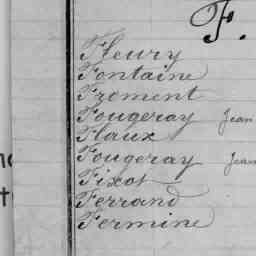 F.
Fleury
Fontaine
Froment
Fougeray Jean
Flaux
Fougeray Jean
Fixot
Ferrand
Fermine